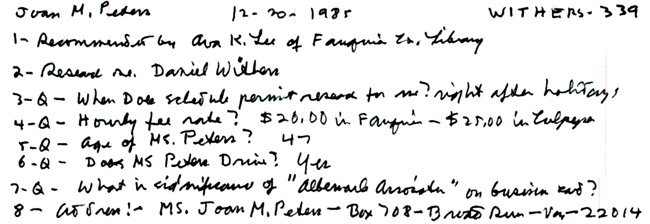 Joan M. Peters 12-20-1985 WITHERS-339
1- Recommended by Ava K. Lee of Fauquier Co. Library
2- Research re. Daniel Withers
3-Q- When Does schedule permit research for me? right after holidays
4-Q- Hourly fee rate? $20.00 in Fauquier - $25.00 in Culpeper
5-Q- Age of MS. Peters? 47
6-Q- Does MS Peters Drive? Yes
7-Q- What is significance of "Albemarle Associates" on business card?
8- Address:- MS. Joan M. Peters - Box 708 - Run - Va - 22014